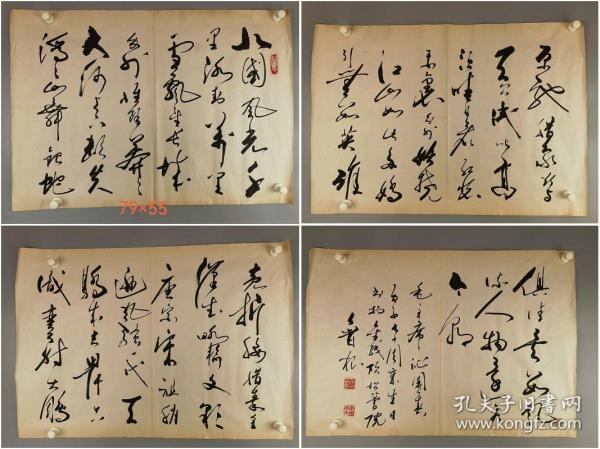 北国风光千
里冰封万里
雪飘望长城
内外惟余莽莽
大河上下顿失
滔滔山舞银蛇
79×55
原驰腊象欲与
天公试比高
须晴日看红装
素裹分外妖娆
江山如此多娇
引无数英雄
竞折腰惜秦皇
汉武略输文彩
唐宗宋祖稍
逊风骚一代天
骄成吉思汗只
识弯弓射大雕
俱往矣数风
流人物还看
今朝
毛主席沁园春
孔夫子旧书网
www.kongfz.com